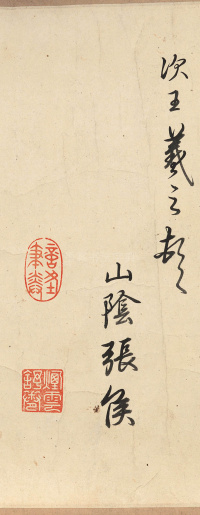 次王羲之頓首
山陰張侯